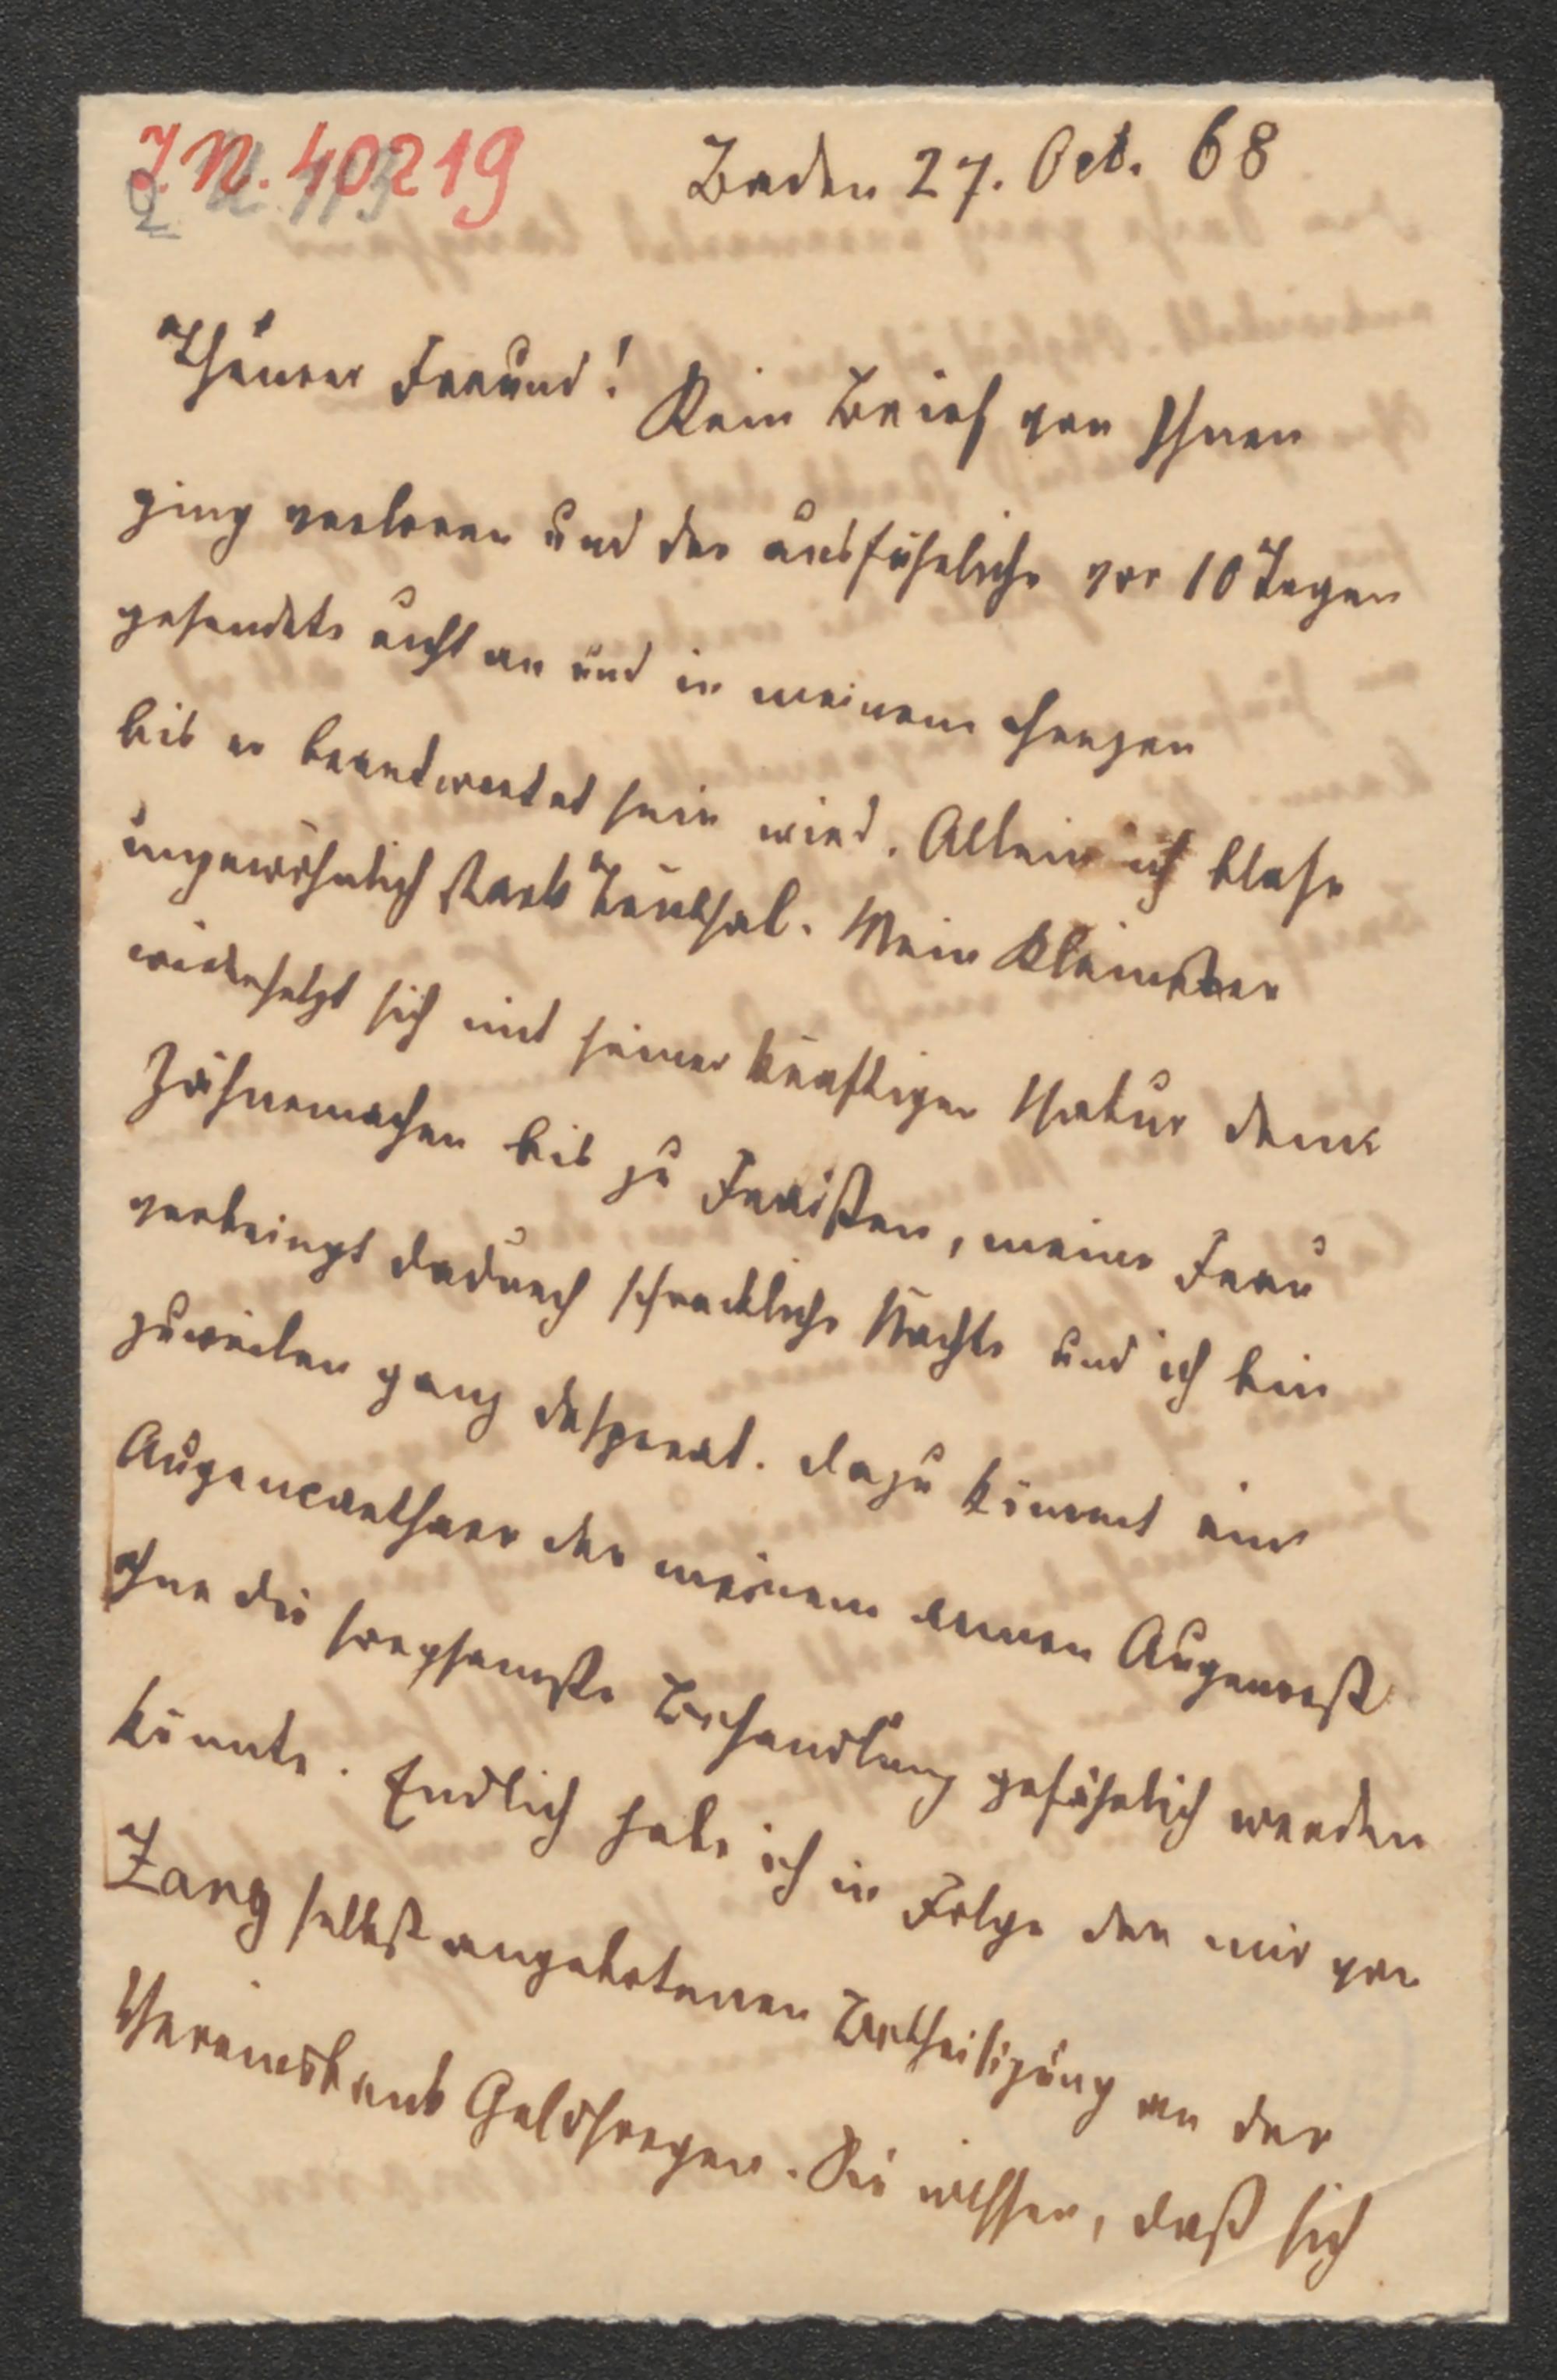 J.N. 40219
Baden 27. Oct. 68
Theurer Freund!
Kein Brief von Ihnen
ging verloren und der ausführliche vor 10 Tagen
gesendete nicht an und in meinem Herzen
bis er beantwortet sein wird. Allein ich blase
ungewöhnlich stark Trübsal. Mein Kleinster
widersetzt sich mit seiner kräftigen Natur dem
Zähnemachen bis zu Fraisen, meine Frau
verbringt dadurch schreckliche Nächte und ich bin
zuweilen ganz desperat. Dazu kömmt ein
Augencatharr der meinem armen Augenrest
ohne die sorgsamste Behandlung gefährlich werden
könnte. Endlich habe ich in Folge der mir von
Zang selbst angebotenen Betheiligung an der
Vereinsbank Geldsorgen. Sie wissen, daß sich